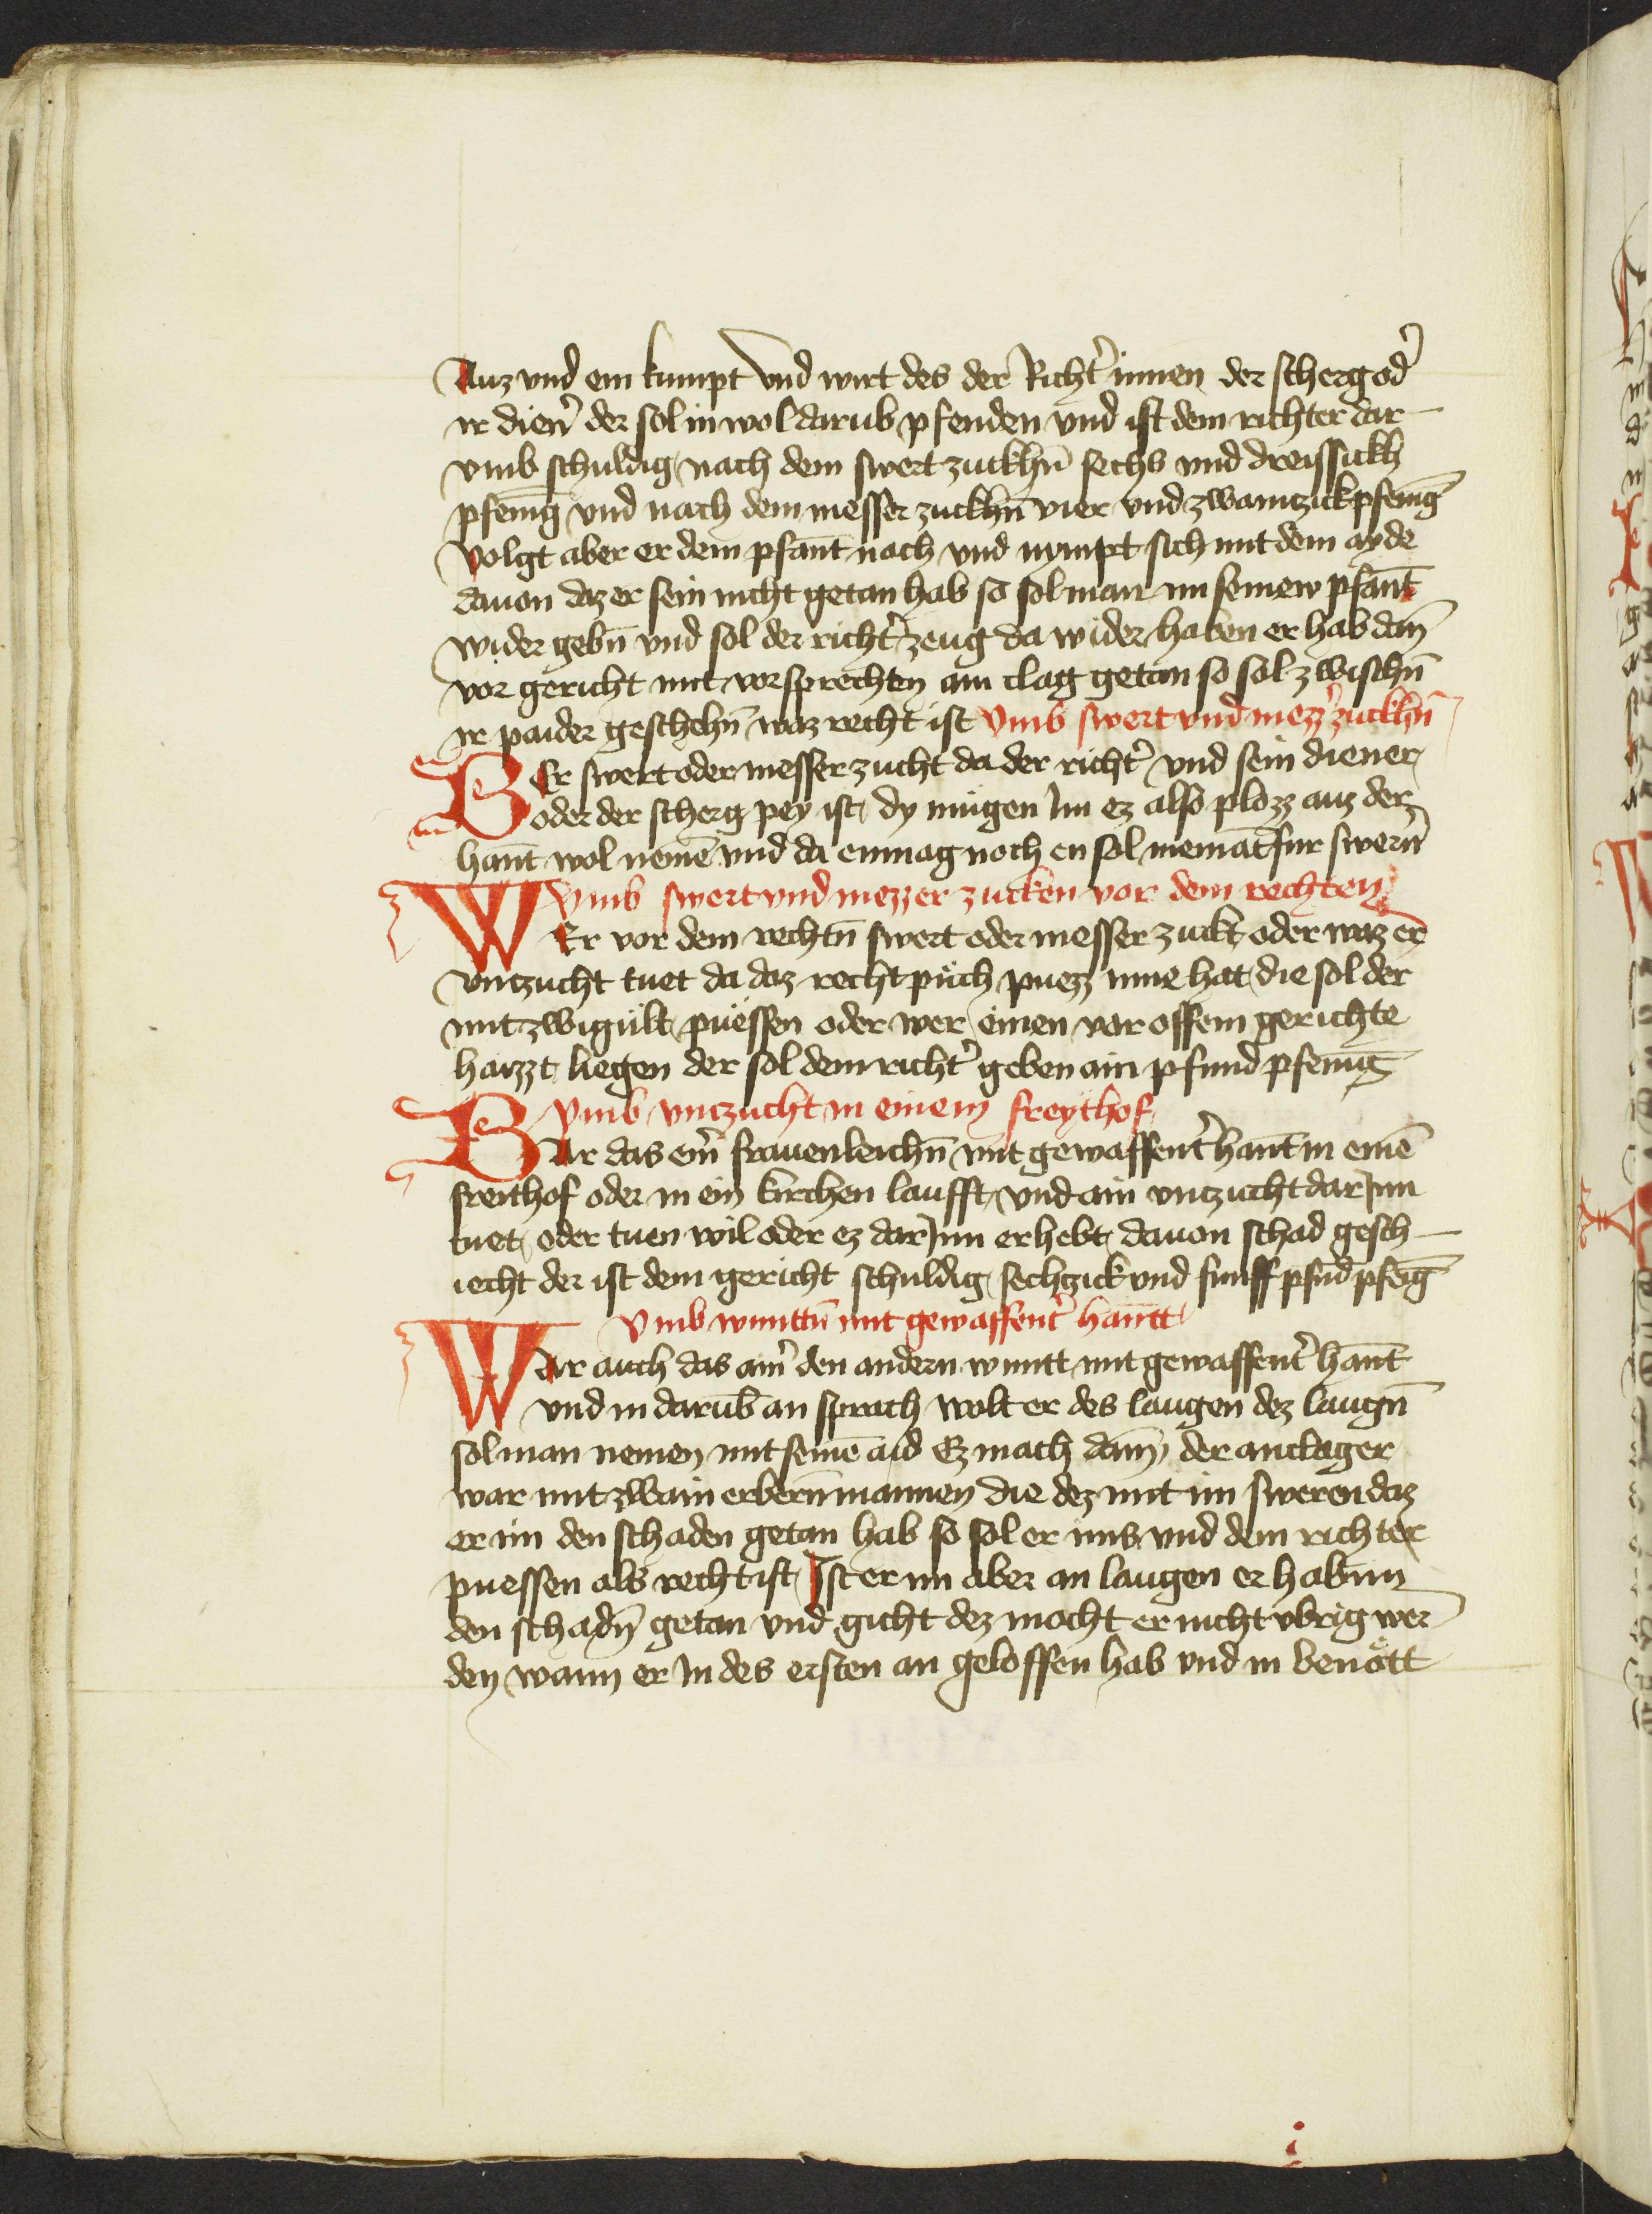 Auz vnd ein kumpt vnd wirt des der Richt̉ innen der scherg od̉
ir dien̉ der sol in wol darub pfenden vnd ist dem richter dar
vmb schuldig nach dem swert zuckhn̄ sechs vnd dreissickh
pfenīg vnd nach dem messer zuckhn̄ vier vnd zwaintzick pfenīg
volgt aber er dem pfant nach vnd nympt sich mit dem ayde
dauon daz er sein nicht getan hab so sol man im seinew pfant
wider gebn̄ vnd sol der richt̉ zeug da wider haben er hab dan̄
vor gericht mit vorsprechten ain clag getan so sol zwischn̄
ir paider geschehn̄ waz recht ist vmb swert vnd mezz̉ zuckhn̄
Wer swert oder messer zucht da der richt̉ vnd sein diener
oder der scherg pey ist dy mügen im ez also plozz auz der
hant wol nemē vnd da enmag noch en sol niemāt fur swern̄
vmb swert vnd mezzer zucken vor dem rechten
WEr vor dem rechtn̄ swert oder messer zuckt oder waz er
vntzucht tuet da daz recht püch puezz inne hat die sol der
mit zwigült püessen oder wer einen vor offem gerichte
haizzt liegen der sol dem richt̉ geben ain pfund pfenīg
vmb vntzucht in einem freythof
WAr das ein̉ frauenleichn̄ mit gewaffent̉ hant in einē
freithof oder in ein kirchen laufft vnd ain vntzucht dar Inn
tuet oder tuen wil oder ez dar Inn erhebt dauon schad gesch
iecht der ist dem gericht schuldig sechzick vnd fünff pfūd pfēīg
vmb wuntn̄ mit gewaffent̉ hantt
War auch das ain̉ den andern wuntt mit gewaffent̉ hant
vnd in darūb an sprach wolt er des laugen dez laugn̄
sol man nemen mit seinē aid Ez mach dan̄ der anclager
war mit zwain erbern̄ mannen die dez mit im sweren daz
er im den schaden getan hab so sol er ims vnd dem richter
puessen als recht ist Ist er im aber an laugen er hab im
den schadn̄ getan vnd gicht dez mocht er nicht vbrig wer
den wann er In des ersten an geloffen hab vnd in benött